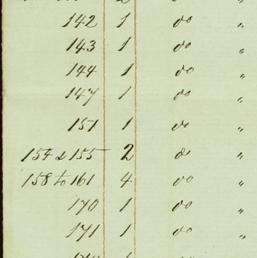 142 1 do "
143 1 do "
144 1 do "
147 1 do "
151 1 do "
154 & 155 2 do "
158 to 161 4 do "
170 1 do "
171 1 do "